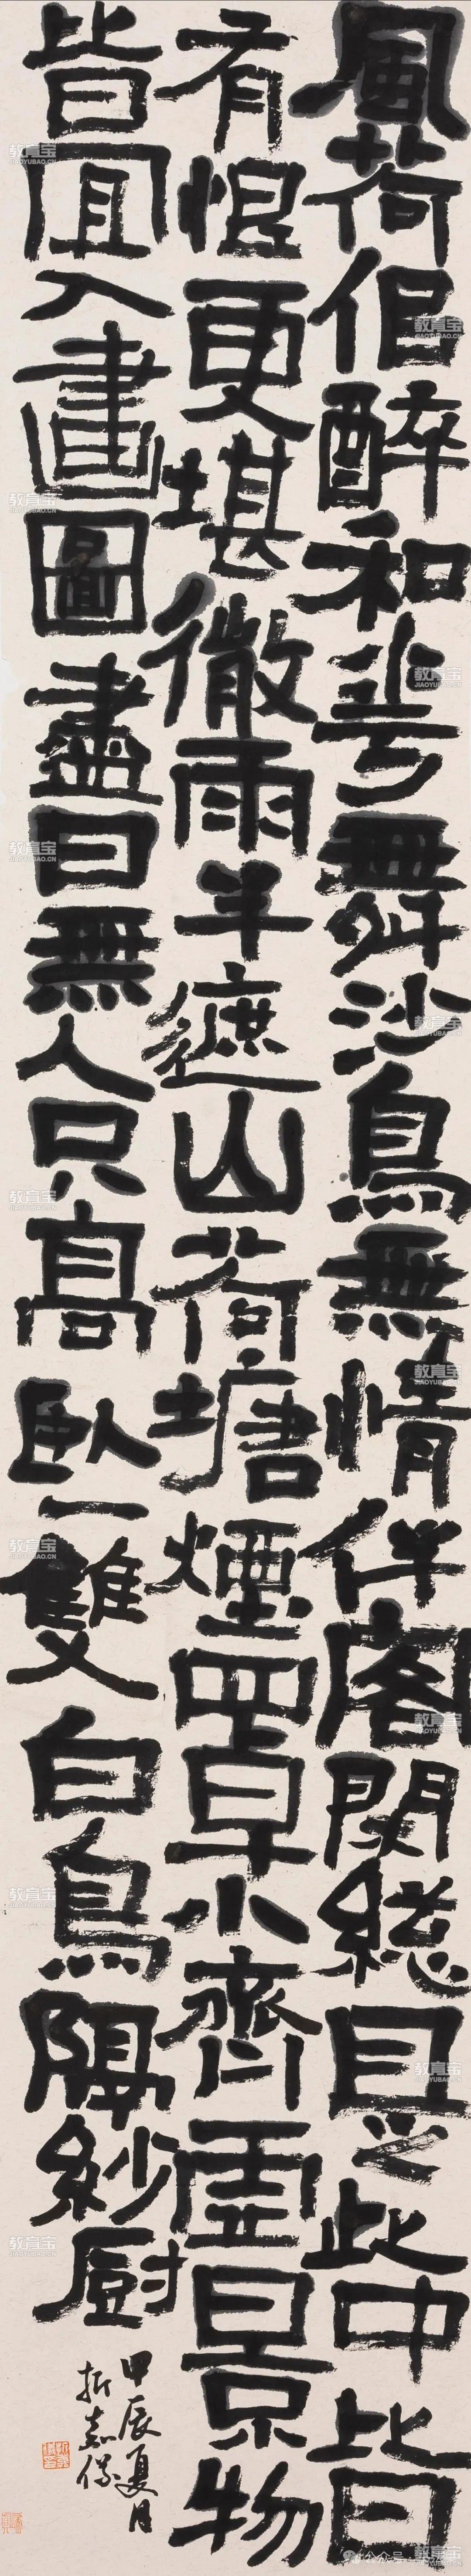 風荷佀醉和華舞沙鳥無情伴客閒總是此中皆
有恨更堪微雨半遮山荷塘煙罩小齋虛景物
皆宜入畫圖盡日無人只高臥一雙白鳥隔紗厨
甲辰夏月
教育宝
JIAOYUBAO.CN
公众号